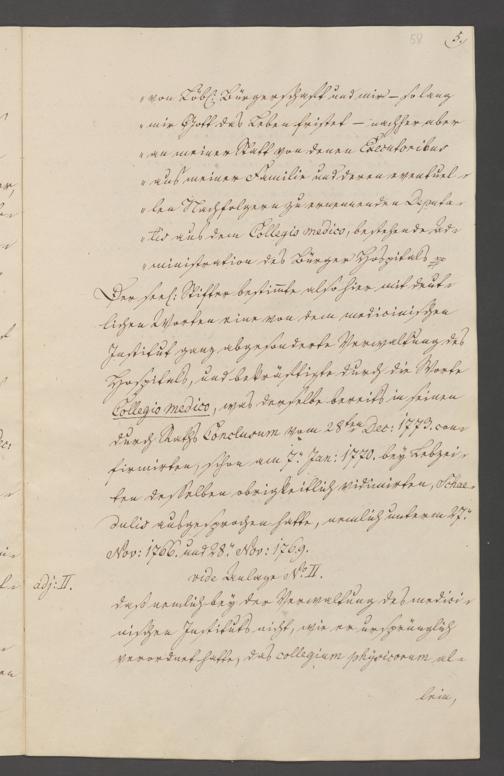 58 5.
„von Löbl: Bürgerschaft und mir – so lang
„mir Gott das Leben fristet – nachher aber
„an meiner Statt von denen Executoribus
„aus meiner Familie und deren eventuel-
„len Nachfolgern zu ernennenden Deputa-
„tis aus dem Collegio medico, bestehende Ad-
„ministration des Bürger Hospitals
Der seel: Stifter bestimte also hier mit deut-
lichen Worten eine von dem medicinischen
Institut ganz abgesonderte Verwaltung des
Hospitals, und bekräftigte durch die Worte
Collegio medico, was derselbe bereits in seinen
durch Raths Conclusum vom 28ten Dec: 1773. con-
firmirten, schon am 7n Jan: 1770. bey Lebzei-
ten desselben obrigkeitlich vidimirten, Schae-
dulis ausgesprochen hatte, nemlich unterm 27n
Nov: 1766. und 28n Nov: 1769.
vide Anlage No. II.
adj: II.
daß nemlich bey der Verwaltung des medici-
nischen Instituts nicht, wie er ursprünglich
verordnet hatte, das collegium physicorum al-
lein,